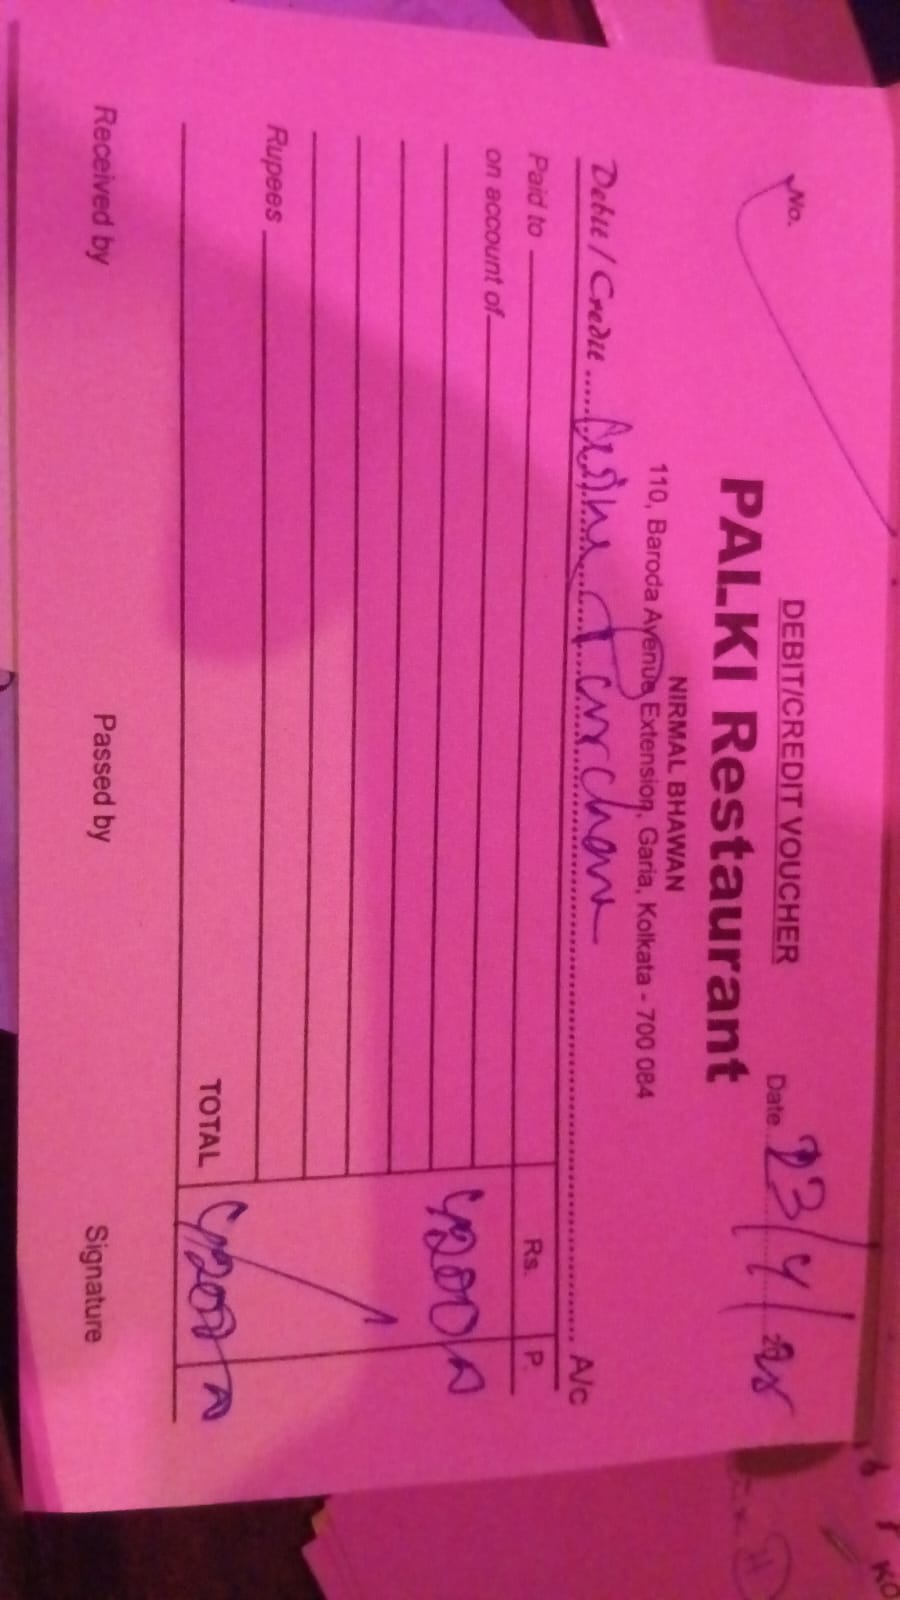 DEBIT/CREDIT VOUCHER
No.
Date 23/4/25
PALKI Restaurant
NIRMAL BHAWAN
110, Baroda Avenue Extension, Garia, Kolkata - 700 084
Debit / Credit Purchase A/c
Paid to
Rs. P.
on account of
4200
Rupees
TOTAL 4200
Received by Passed by Signature